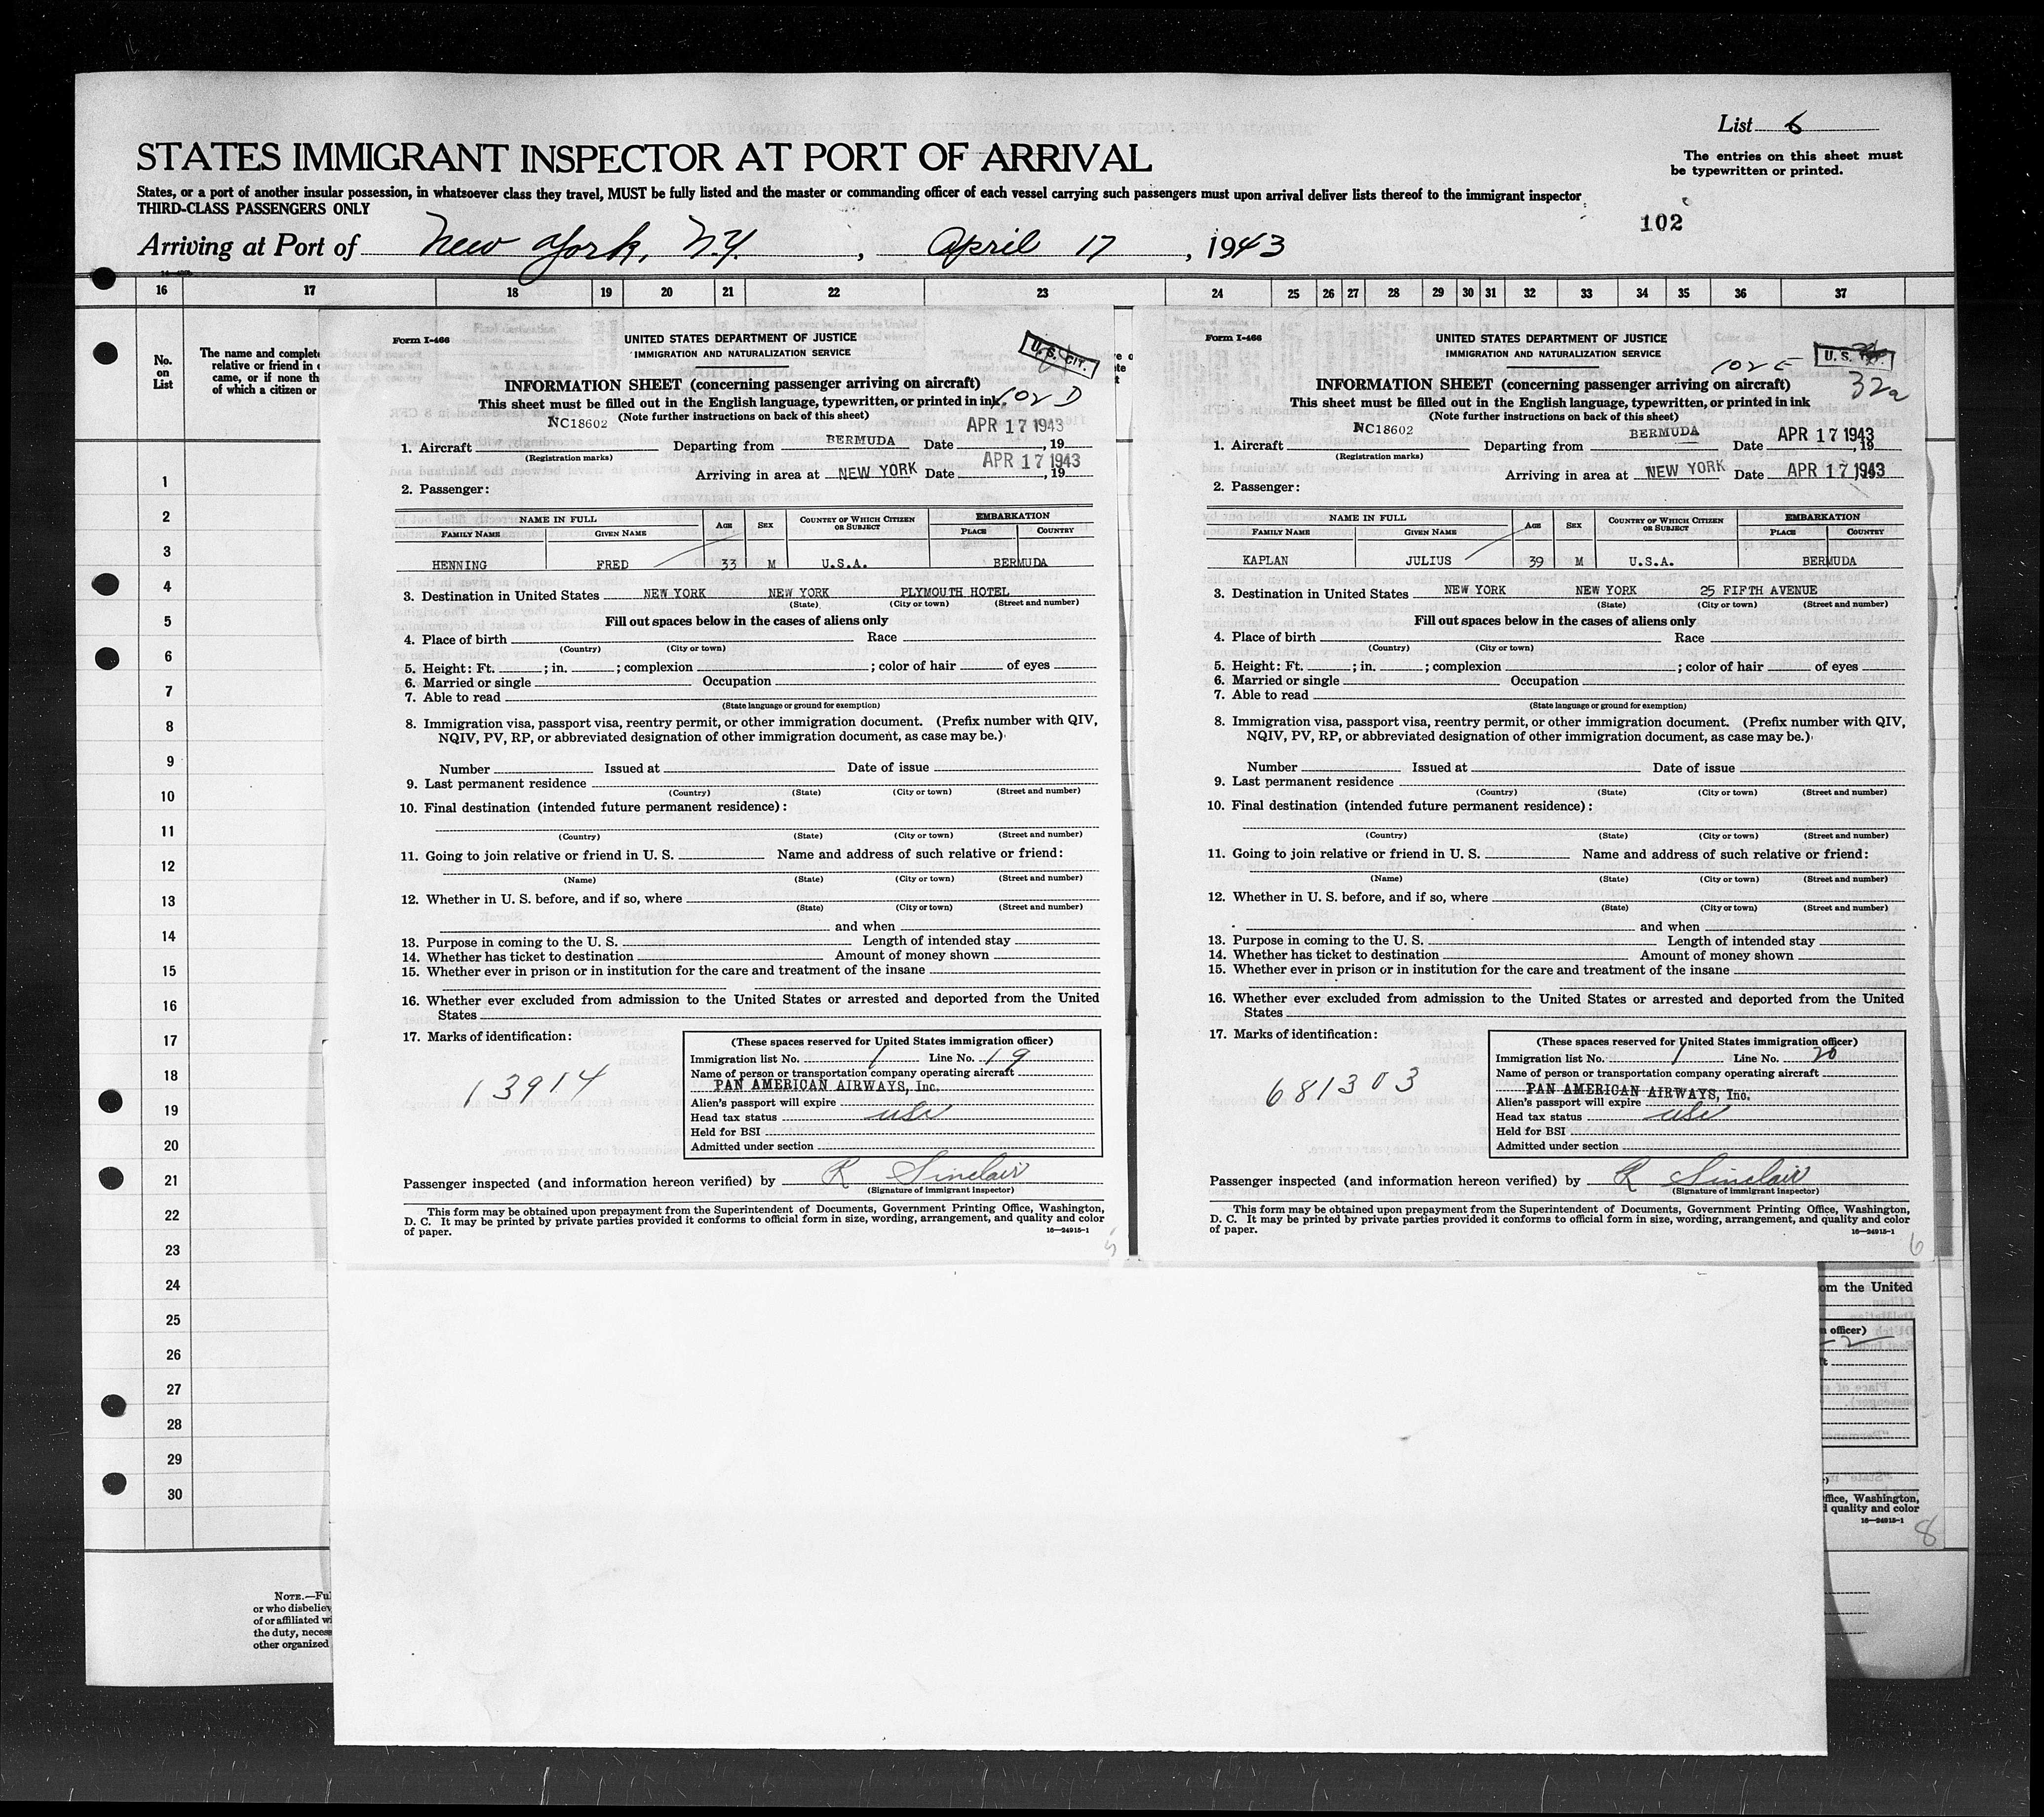 List 6
STATES IMMIGRANT INSPECTOR AT PORT OF ARRIVAL
The entries on this sheet must
be typewritten or printed.
States, or a port of another insular possession, in whatsoever class they travel, MUST be fully listed and the master or commanding officer of each vessel carrying such passengers must upon arrival deliver lists thereof to the immigrant inspector
THIRD-CLASS PASSENGERS ONLY
102
Arriving at Port of New York, N.Y., April 17, 1943
16 17 18 19 20 21 22 23 24 25 26 27 28 29 30 31 32 33 34 35 36 37
No.
on
List
The name and complete
relative or friend in
came, or if none th
of which a citizen or
1
2
3
4
5
6
7
8
9
10
11
12
13
14
15
16
17
18
19
20
21
22
23
24
25
26
27
28
29
30
NOTE.—Ful
or who disbeliev
of or affiliated wi
the duty, necess
other organized
Form I-466
UNITED STATES DEPARTMENT OF JUSTICE
IMMIGRATION AND NATURALIZATION SERVICE
U. S. CIT.
INFORMATION SHEET (concerning passenger arriving on aircraft)
102 D
This sheet must be filled out in the English language, typewritten, or printed in ink.
(Note further instructions on back of this sheet)
1. Aircraft NC18602 Departing from BERMUDA Date APR 17 1943, 19
(Registration marks)
Arriving in area at NEW YORK Date APR 17 1943, 19
2. Passenger:
NAME IN FULL AGE SEX COUNTRY OF WHICH CITIZEN OR SUBJECT EMBARKATION
FAMILY NAME GIVEN NAME PLACE COUNTRY
HENNING FRED 33 M U.S.A. BERMUDA
3. Destination in United States NEW YORK NEW YORK PLYMOUTH HOTEL
(State) (City or town) (Street and number)
Fill out spaces below in the cases of aliens only
4. Place of birth Race
(Country) (City or town)
5. Height: Ft. ; in. ; complexion ; color of hair of eyes
6. Married or single Occupation
7. Able to read
(State language or ground for exemption)
8. Immigration visa, passport visa, reentry permit, or other immigration document. (Prefix number with QIV,
NQIV, PV, RP, or abbreviated designation of other immigration document, as case may be.)
Number Issued at Date of issue
9. Last permanent residence
(Country) (State) (City or town) (Street and number)
10. Final destination (intended future permanent residence):
(Country) (State) (City or town) (Street and number)
11. Going to join relative or friend in U. S. Name and address of such relative or friend:
(Name) (State) (City or town) (Street and number)
12. Whether in U. S. before, and if so, where
(State) (City or town) (Street and number)
and when
13. Purpose in coming to the U. S. Length of intended stay
14. Whether has ticket to destination Amount of money shown
15. Whether ever in prison or in institution for the care and treatment of the insane
16. Whether ever excluded from admission to the United States or arrested and deported from the United
States
17. Marks of identification:
13914
(These spaces reserved for United States immigration officer)
Immigration list No. 1 Line No. 19
Name of person or transportation company operating aircraft
PAN AMERICAN AIRWAYS, Inc.
Alien's passport will expire
Head tax status usc
Held for BSI
Admitted under section
Passenger inspected (and information hereon verified) by R Sinclair
(Signature of immigrant inspector)
This form may be obtained upon prepayment from the Superintendent of Documents, Government Printing Office, Washington,
D. C. It may be printed by private parties provided it conforms to official form in size, wording, arrangement, and quality and color
of paper. 16—24915-1
5
Form I-466
UNITED STATES DEPARTMENT OF JUSTICE
IMMIGRATION AND NATURALIZATION SERVICE
U. S.
102 E
32a
INFORMATION SHEET (concerning passenger arriving on aircraft)
This sheet must be filled out in the English language, typewritten, or printed in ink
(Note further instructions on back of this sheet)
1. Aircraft NC18602 Departing from BERMUDA Date APR 17 1943, 19
(Registration marks)
Arriving in area at NEW YORK Date APR 17 1943
2. Passenger:
NAME IN FULL AGE SEX COUNTRY OF WHICH CITIZEN OR SUBJECT EMBARKATION
FAMILY NAME GIVEN NAME PLACE COUNTRY
KAPLAN JULIUS 39 M U.S.A. BERMUDA
3. Destination in United States NEW YORK NEW YORK 25 FIFTH AVENUE
(State) (City or town) (Street and number)
Fill out spaces below in the cases of aliens only
4. Place of birth Race
(Country) (City or town)
5. Height: Ft. ; in. ; complexion ; color of hair of eyes
6. Married or single Occupation
7. Able to read
(State language or ground for exemption)
8. Immigration visa, passport visa, reentry permit, or other immigration document. (Prefix number with QIV,
NQIV, PV, RP, or abbreviated designation of other immigration document, as case may be.)
Number Issued at Date of issue
9. Last permanent residence
(Country) (State) (City or town) (Street and number)
10. Final destination (intended future permanent residence):
(Country) (State) (City or town) (Street and number)
11. Going to join relative or friend in U. S. Name and address of such relative or friend:
(Name) (State) (City or town) (Street and number)
12. Whether in U. S. before, and if so, where
(State) (City or town) (Street and number)
and when
13. Purpose in coming to the U. S. Length of intended stay
14. Whether has ticket to destination Amount of money shown
15. Whether ever in prison or in institution for the care and treatment of the insane
16. Whether ever excluded from admission to the United States or arrested and deported from the United
States
17. Marks of identification:
681303
(These spaces reserved for United States immigration officer)
Immigration list No. 1 Line No. 20
Name of person or transportation company operating aircraft
PAN AMERICAN AIRWAYS, Inc.
Alien's passport will expire
Head tax status usc
Held for BSI
Admitted under section
Passenger inspected (and information hereon verified) by R Sinclair
(Signature of immigrant inspector)
This form may be obtained upon prepayment from the Superintendent of Documents, Government Printing Office, Washington,
D. C. It may be printed by private parties provided it conforms to official form in size, wording, arrangement, and quality and color
of paper. 16—24915-1
6
om the United
officer)
ffice, Washington,
quality and color
16—24915-1
8